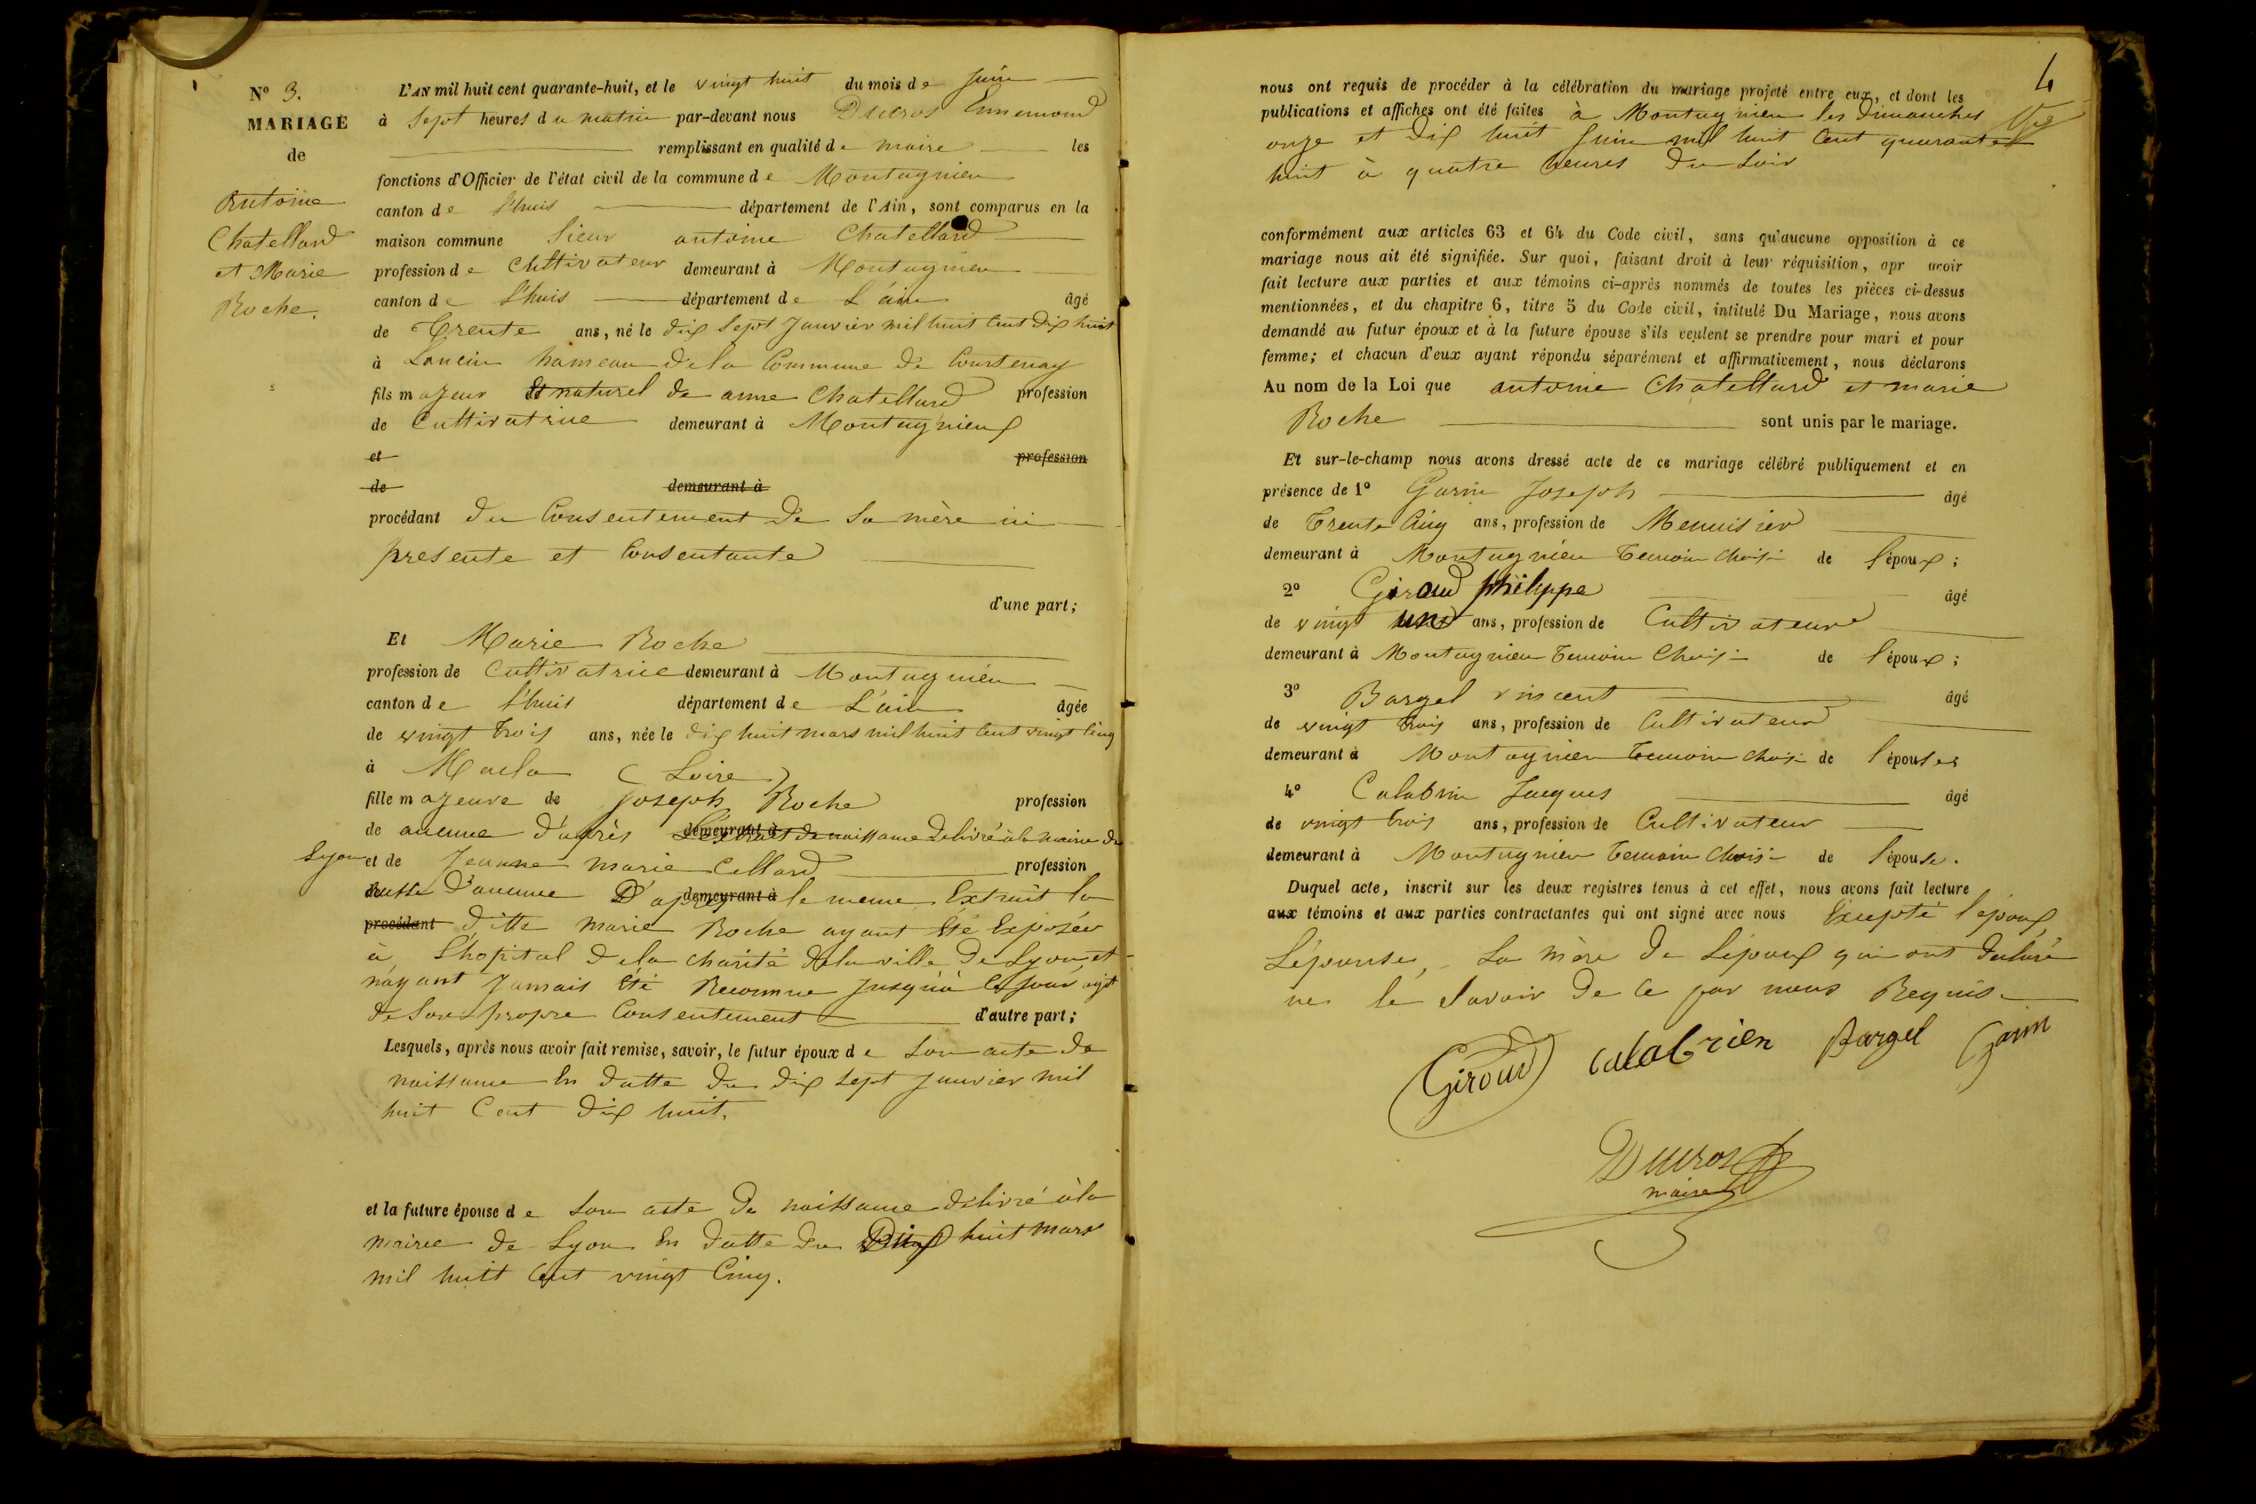 N° 3.
MARIAGE
de
Antoine
Chatellard
et Marie
Roche.
L'AN mil huit cent quarante-huit, et le vingt huit du mois de Juin
à sept heures du matin par-devant nous Ducros Ennemond
remplissant en qualité de maire les
fonctions d'Officier de l'état civil de la commune de Montagnieu
canton de l'huis département de l'Ain, sont comparus en la
maison commune Sieur antoine Chatellard
profession de Cultivateur demeurant à Montagnieu
canton de l'huis département de L'ain âgé
de Trente ans, né le dix sept Janvier mil huit Cent dix huit
à Lancin hameau de la Commune de Courtenay
fils majeur et naturel de anne Chatellard profession
de Cultivatrice demeurant à Montagnieux
et profession
de demeurant à
procédant du Consentement de sa mère ici
presente et Consentante
d'une part;
Et Marie Roche
profession de Cultivatrice demeurant à Montagnieu
canton de l'huis département de L'ain âgée
de vingt trois ans, née le dix huit mars mil huit Cent vingt Cinq
à Macla (Loire)
fille majeure de Joseph Roche profession
de aucune d'après demeurant à L'extrait de naissance delivré à la mairie de
Lyon et de Jeanne marie Cellard profession
d'aucune D'après demeurant à le meme Extrait la
procédant ditte marie Roche ayant été Exposée
à L'hopital de la charité de la ville de Lyon et
n'ayant Jamais été Reconnue Jusqu'à ce jour agit
de son propre Consentement d'autre part;
Lesquels, après nous avoir fait remise, savoir, le futur époux de son acte de
naissance En datte du dix sept Janvier mil
huit Cent dix huit.
et la future épouse de son acte de naissance délivré à la
mairie de Lyon En datte du Dix huit mars
mil huit Cent vingt Cinq.
4
nous ont requis de procéder à la célébration du mariage projeté entre eux, et dont les
publications et affiches ont été faites à Montagnieu les dimanches
onze et dix huit Juin mil huit Cent quarante
huit à quatre heures du soir
conformément aux articles 63 et 64 du Code civil, sans qu'aucune opposition à ce
mariage nous ait été signifiée. Sur quoi, faisant droit à leur réquisition, apr avoir
fait lecture aux parties et aux témoins ci-après nommés de toutes les pièces ci-dessus
mentionnées, et du chapitre 6, titre 5 du Code civil, intitulé Du Mariage, nous avons
demandé au futur époux et à la future épouse s'ils veulent se prendre pour mari et pour
femme; et chacun d'eux ayant répondu séparément et affirmativement, nous déclarons
Au nom de la Loi que antoine Chatellard et marie
Roche sont unis par le mariage.
Et sur-le-champ nous avons dressé acte de ce mariage célébré publiquement et en
présence de 1° Garin Joseph âgé
de Trente Cinq ans, profession de Menuisier
demeurant à Montagnieu Temoin choisi de l'époux;
2° Giroud philippe âgé
de vingt un ans, profession de Cultivateur
demeurant à Montagnieu Temoin Choisi de l'époux;
3° Bargel vincent âgé
de vingt trois ans, profession de Cultivateur
demeurant à Montagnieu Temoin choisi de l'épouse
4° Calabrin Jacques âgé
de vingt trois ans, profession de Cultivateur
demeurant à Montagnieu Temoin Choisi de l'épouse.
Duquel acte, inscrit sur les deux registres tenus à cet effet, nous avons fait lecture
aux témoins et aux parties contractantes qui ont signé avec nous Excepté l'époux
L'épouse, La mère de L'époux qui ont déclaré
ne le savoir de Ce par nous Requis.
Giroud Calabrien Bargel Garin
Ducros
maire